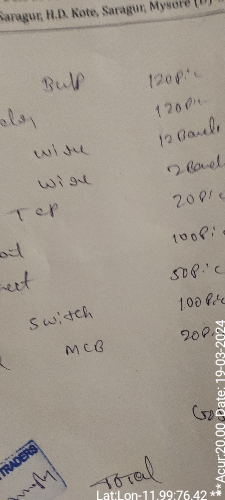 Saragur, H.D. Kote, Saragur, Mysore (D)
Bulp 120 Pic
120 Pic
wire 12 Bandl
wire 2 Bandl
Tep 20 Pic
100 Pic
50 Pic
Switch 100 Pic
MCB 20 Pic
Total
TRADERS
Lat:Lon-11.99:76.42 **Acur:20.00 Date: 19-03-2024